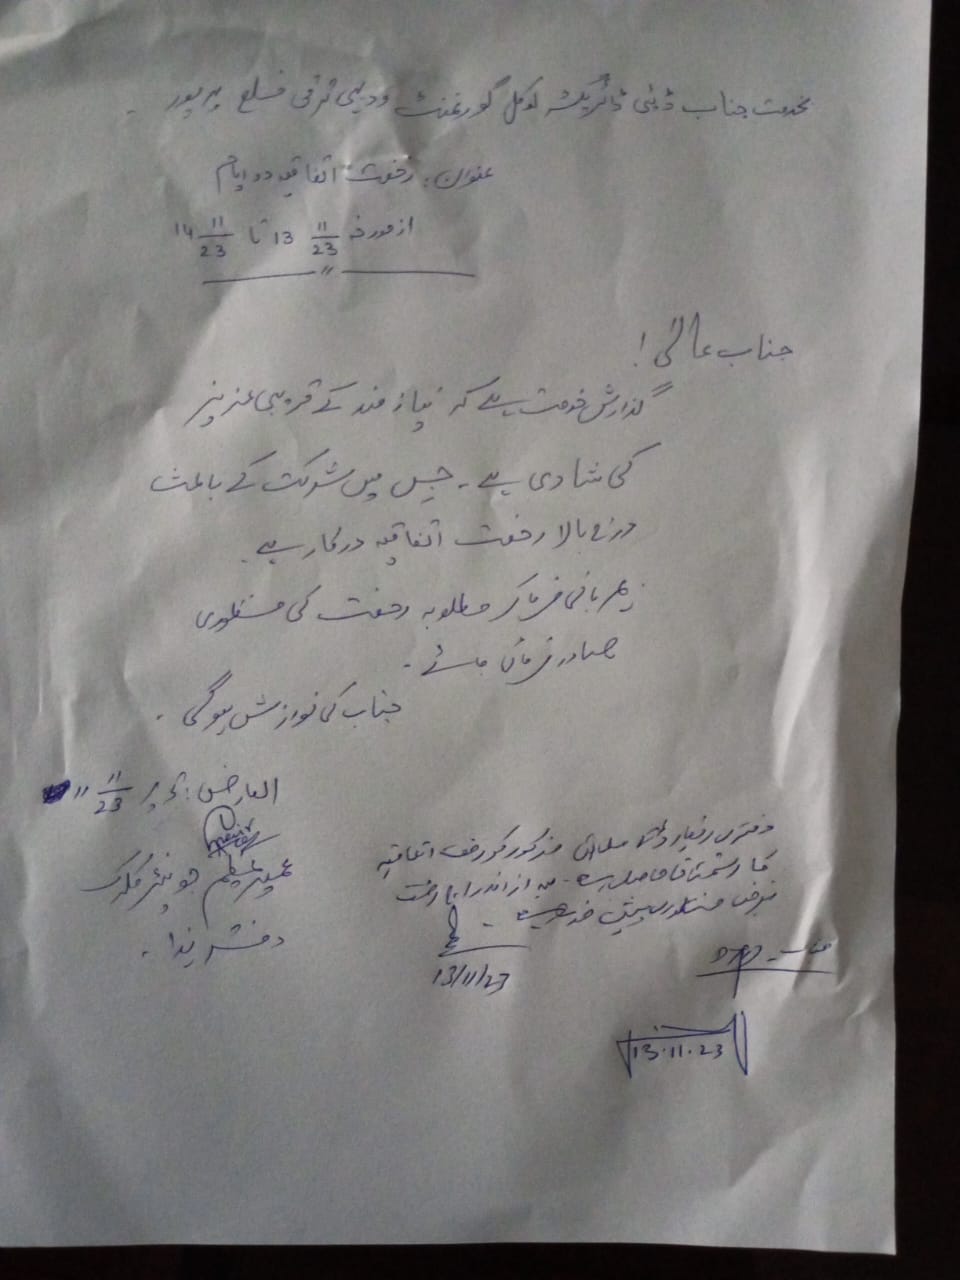 بخدمت جناب ڈپٹی ڈائریکٹر لوکل گورنمنٹ و دیہی ترقی ضلع میرپور۔
عنوان: رخصت اتفاقیہ دو ایام
از مورخہ 13 11/23 تا 14 11/23
جناب عالی!
گذارش خدمت ہے کہ نیاز مند کے قریبی عزیز
کی شادی ہے۔ جس میں شرکت کے باعث
درج بالا رخصت اتفاقیہ درکار ہے۔
مہربانی فرما کر مطلوبہ رخصت کی منظوری
صادر فرمائی جائے۔
جناب کی نوازش ہوگی۔
العارض: 11/23
جونیئر کلرک
دفتر ہذا۔
دفتری ریکارڈ کے مطابق مذکور کو رخصت اتفاقیہ
کا استحقاق حاصل ہے۔ بعد از اندراج رخصت
بغرض منظوری پیش خدمت ہے۔
13/11/23
جناب DD
13.11.23